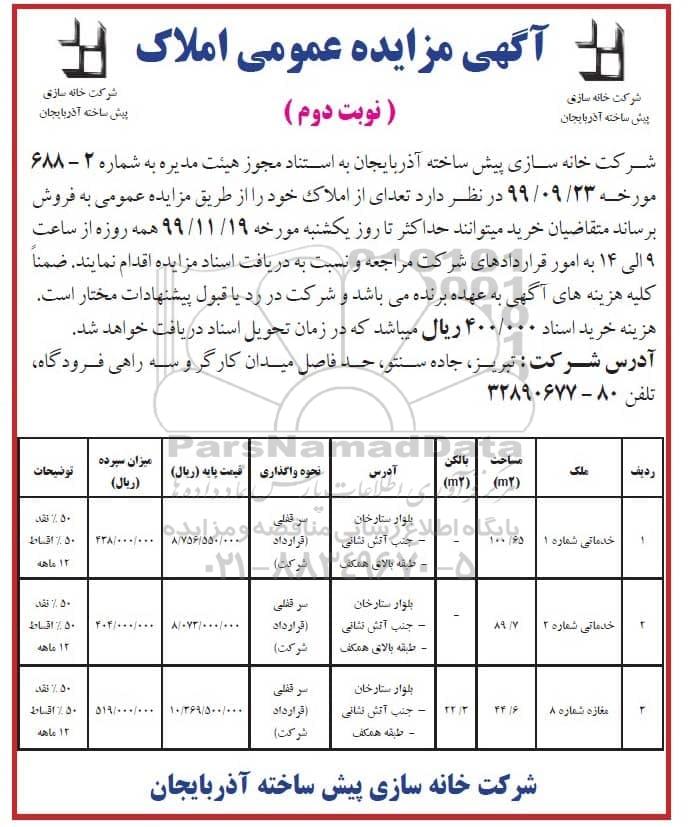 آگهی مزایده عمومی املاک
( نوبت دوم )
شرکت خانه سازی
پیش ساخته آذربایجان
شرکت خانه سازی
پیش ساخته آذربایجان
شرکت خانه سازی پیش ساخته آذربایجان به استناد مجوز هیئت مدیره به شماره ۲ - ۶۸۸
مورخه ۹۹/۰۹/۲۳ در نظر دارد تعدای از املاک خود را از طریق مزایده عمومی به فروش
برساند متقاضیان خرید میتوانند حداکثر تا روز یکشنبه مورخه ۹۹/۱۱/۱۹ همه روزه از ساعت
۹ الی ۱۴ به امور قراردادهای شرکت مراجعه و نسبت به دریافت اسناد مزایده اقدام نمایند. ضمناً
کلیه هزینه های آگهی به عهده برنده می باشد و شرکت در رد یا قبول پیشنهادات مختار است.
هزینه خرید اسناد ۴۰۰/۰۰۰ ریال میباشد که در زمان تحویل اسناد دریافت خواهد شد.
آدرس شرکت : تبریز، جاده سنتو، حد فاصل میدان کارگر و سه راهی فرودگاه،
تلفن ۸۰ - ۳۲۸۹۰۶۷۷
ردیف | ملک | مساحت (m۲) | بالکن (m۲) | آدرس | نحوه واگذاری | قیمت پایه (ریال) | میزان سپرده (ریال) | توضیحات
۱ | خدماتی شماره ۱ | ۱۰۰/۶۵ | - | بلوار ستارخان – جنب آتش نشانی - طبقه بالای همکف | سر قفلی (قرارداد شرکت) | ۸/۷۵۶/۵۵۰/۰۰۰ | ۴۳۸/۰۰۰/۰۰۰ | ۵۰ ٪ نقد ۵۰ ٪ اقساط ۱۲ ماهه
۲ | خدماتی شماره ۲ | ۸۹/۷ | - | بلوار ستارخان – جنب آتش نشانی - طبقه بالای همکف | سر قفلی (قرارداد شرکت) | ۸/۰۷۳/۰۰۰/۰۰۰ | ۴۰۴/۰۰۰/۰۰۰ | ۵۰ ٪ نقد ۵۰ ٪ اقساط ۱۲ ماهه
۳ | مغازه شماره ۸ | ۴۴/۶ | ۲۲/۳ | بلوار ستارخان – جنب آتش نشانی - طبقه همکف | سر قفلی (قرارداد شرکت) | ۱۰/۳۶۹/۵۰۰/۰۰۰ | ۵۱۹/۰۰۰/۰۰۰ | ۵۰ ٪ نقد ۵۰ ٪ اقساط ۱۲ ماهه
ParsNamadData
پایگاه اطلاع رسانی مناقصه و مزایده
۰۲۱-۸۸۳۴۹۶۷۰-۵
شرکت خانه سازی پیش ساخته آذربایجان